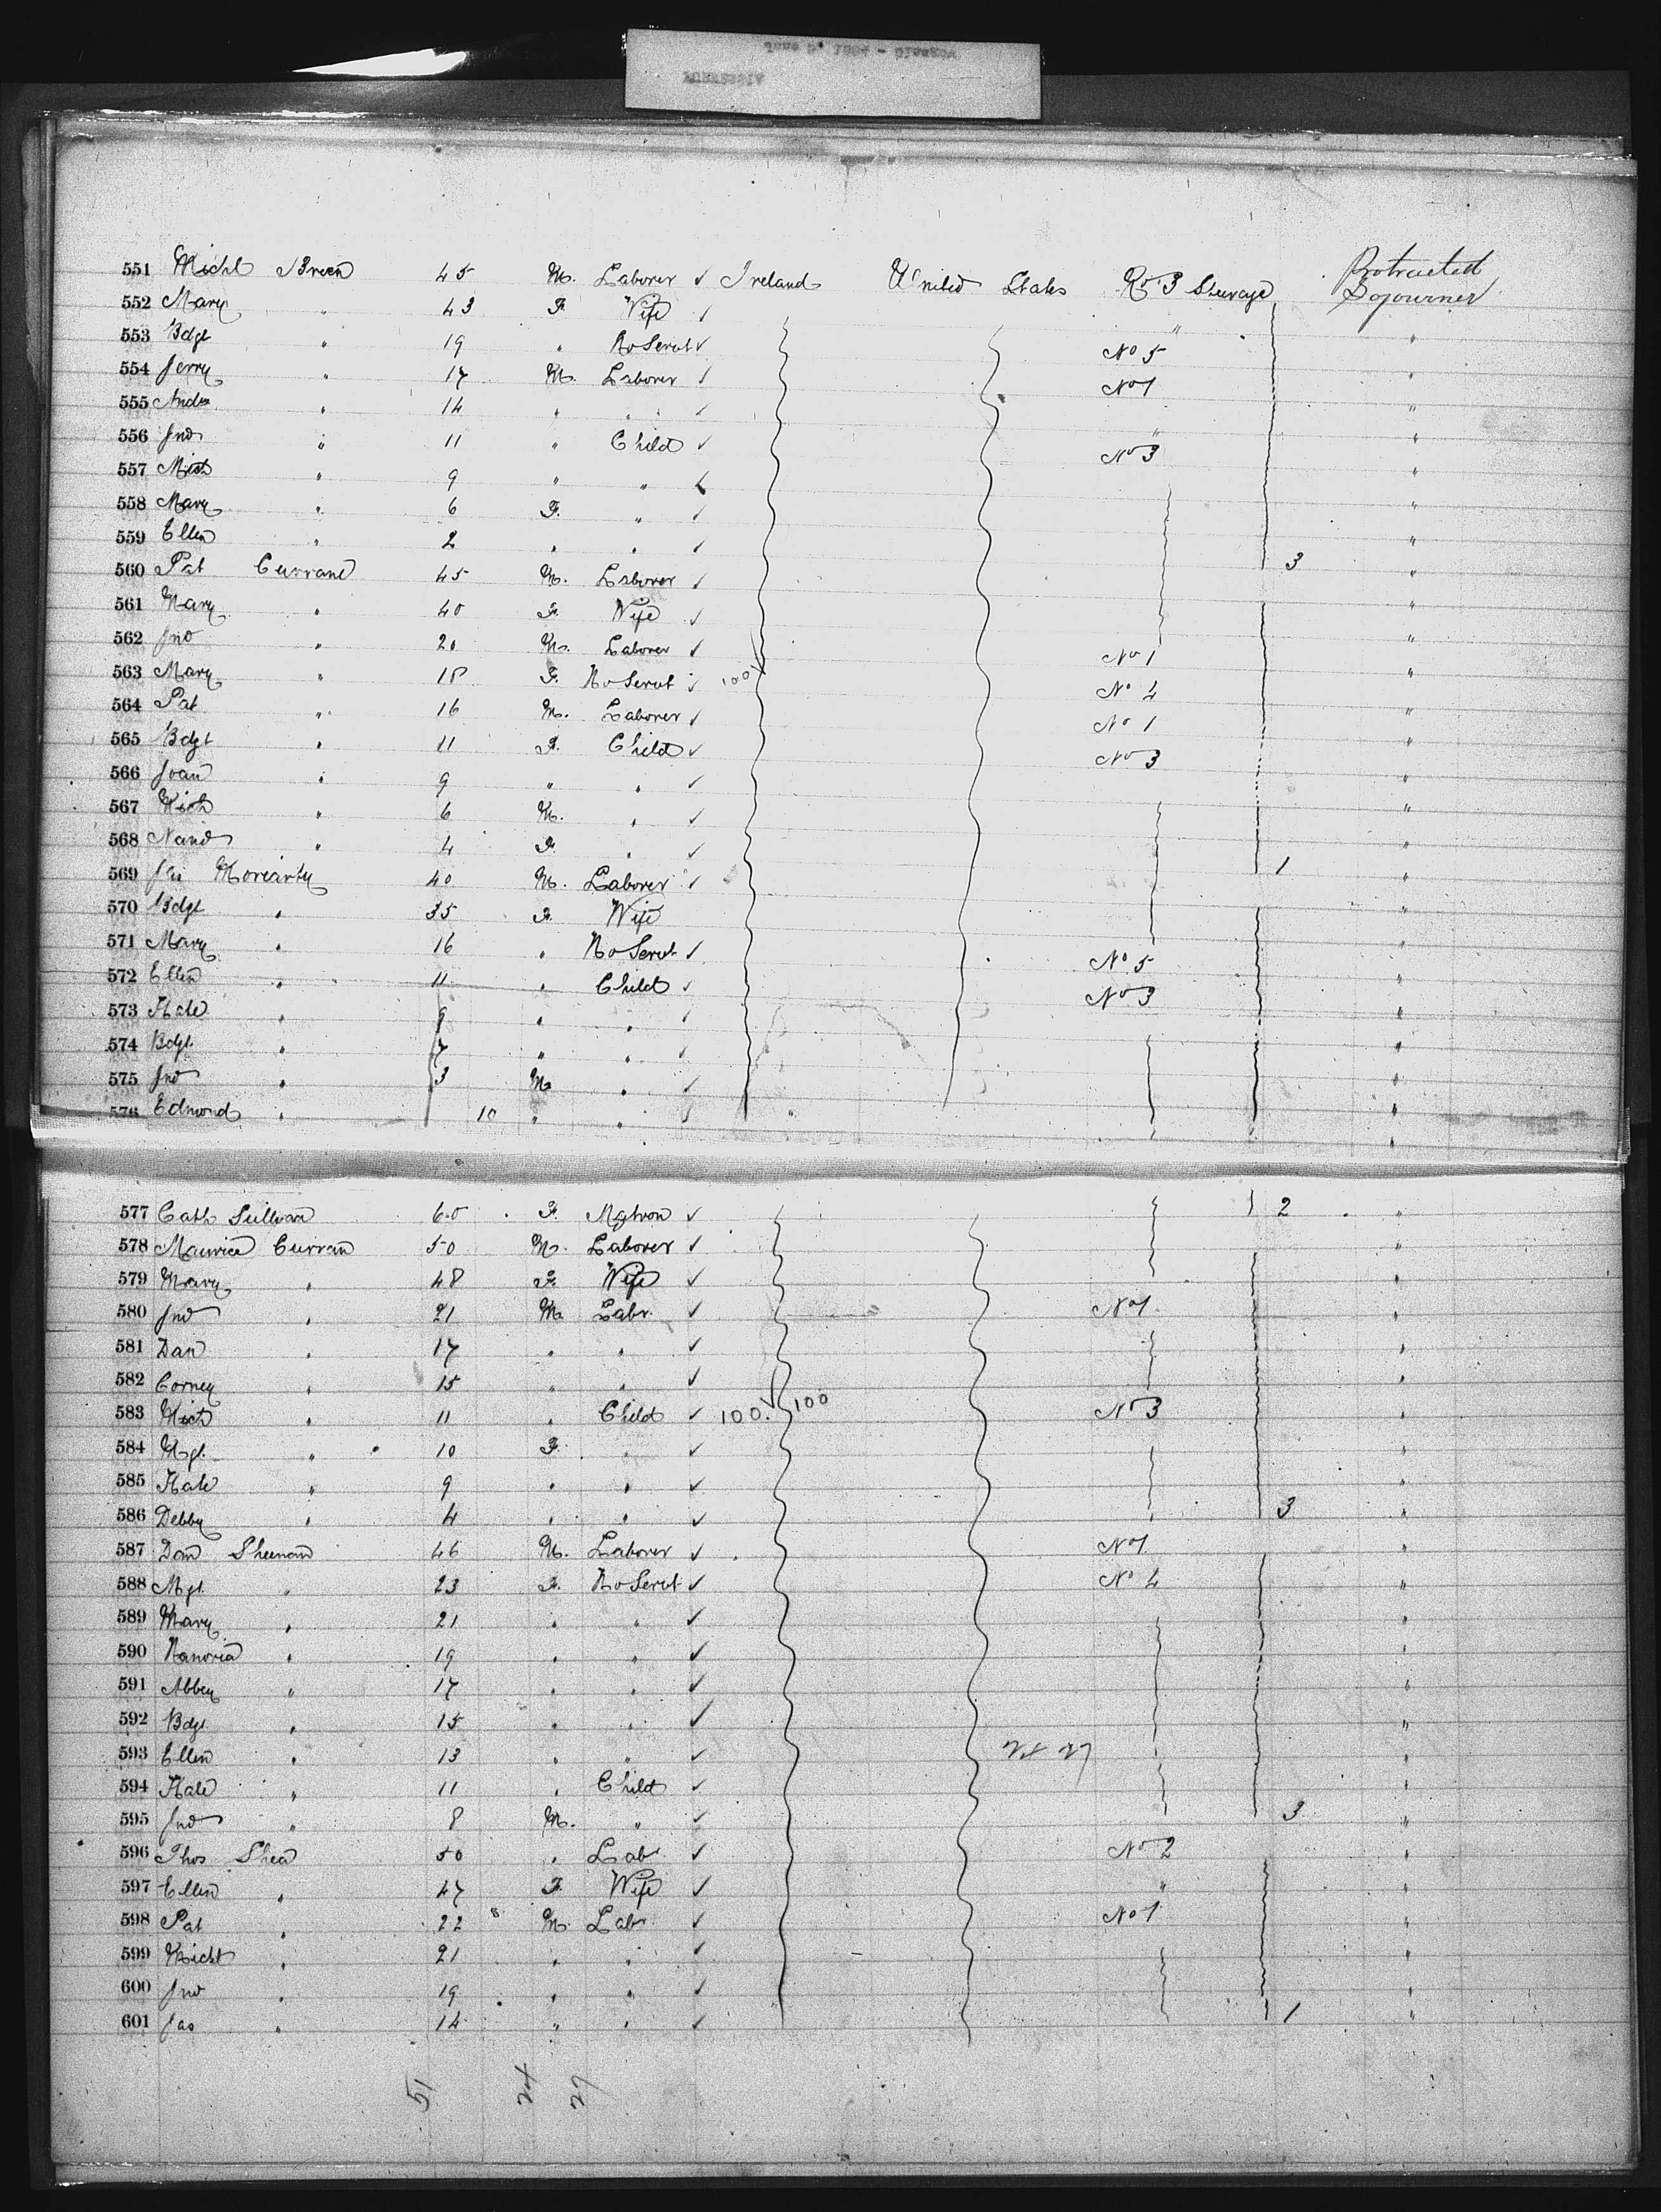 551 Michl Breen 45 M. Laborer ✓ Ireland United States No 3 Steerage Protracted Sojourner
552 Mary " 43 F. Wife ✓ " "
553 Bdgt " 19 " Ho Servt ✓ No 5 "
554 Jerry " 17 M. Laborer ✓ No 1 "
555 Andw " 14 " " ✓ " "
556 Jno " 11 " Child ✓ No 3 "
557 Mich " 9 " " ✓ "
558 Mary " 6 F. " ✓ "
559 Ellen " 2 " " ✓ 3 "
560 Pat Currane 45 M. Laborer ✓ "
561 Mary " 40 F. Wife ✓ "
562 Jno " 20 M. Laborer ✓ No 1 "
563 Mary " 18 F. Ho Servt ✓ 100 No 4 "
564 Pat " 16 M. Laborer ✓ No 1 "
565 Bdgt " 11 F. Child ✓ No 3 "
566 Joan " 9 " " ✓ "
567 Mich " 6 M. " ✓ "
568 Nano " 4 F. " ✓ 1 "
569 Moriarty 40 M. Laborer ✓ "
570 Bdgt " 35 F. Wife "
571 Mary " 16 " Ho Servt ✓ No 5 "
572 Ellen " 11 " Child ✓ No 3 "
573 Kate " 9 " " ✓ "
574 Bdgt " 7 " " ✓ "
575 Jno " 3 M " ✓ "
576 Edmond " 10 " " ✓ " "
577 Cath Sullivan 60 F. Matron ✓ 2 "
578 Maurice Curran 50 M. Laborer ✓ "
579 Mary " 48 F. Wife ✓ "
580 Jno " 21 M. Labr. ✓ No 1 "
581 Dan " 17 " " ✓ "
582 Corney " 15 " " ✓ "
583 Mich " 11 " Child ✓ 100 ✓ 100 No 3 "
584 Mgt. " 10 F. " ✓ "
585 Kate " 9 " " ✓ "
586 Debby " 4 " " ✓ 3 "
587 Dan Sheenan 46 M. Laborer ✓ No 1 "
588 Mgt. " 23 F. Ho Servt ✓ No 4 "
589 Mary " 21 " " ✓ "
590 Hanoria " 19 " " ✓ "
591 Abbey " 17 " " ✓ "
592 Bdgt. " 15 " " ✓ "
593 Ellen " 13 " " ✓ 24 27 "
594 Kate " 11 " Child ✓ "
595 Jno " 8 M. " ✓ 3 "
596 Thos Shea 50 " Labr ✓ No 2 "
597 Ellen " 47 F. Wife ✓ " "
598 Pat " 22 M. Labr ✓ No 1 "
599 Michl " 21 " " ✓ "
600 Jno " 19 " " ✓ "
601 Jas " 14 " " ✓ 1 "
51 24 27